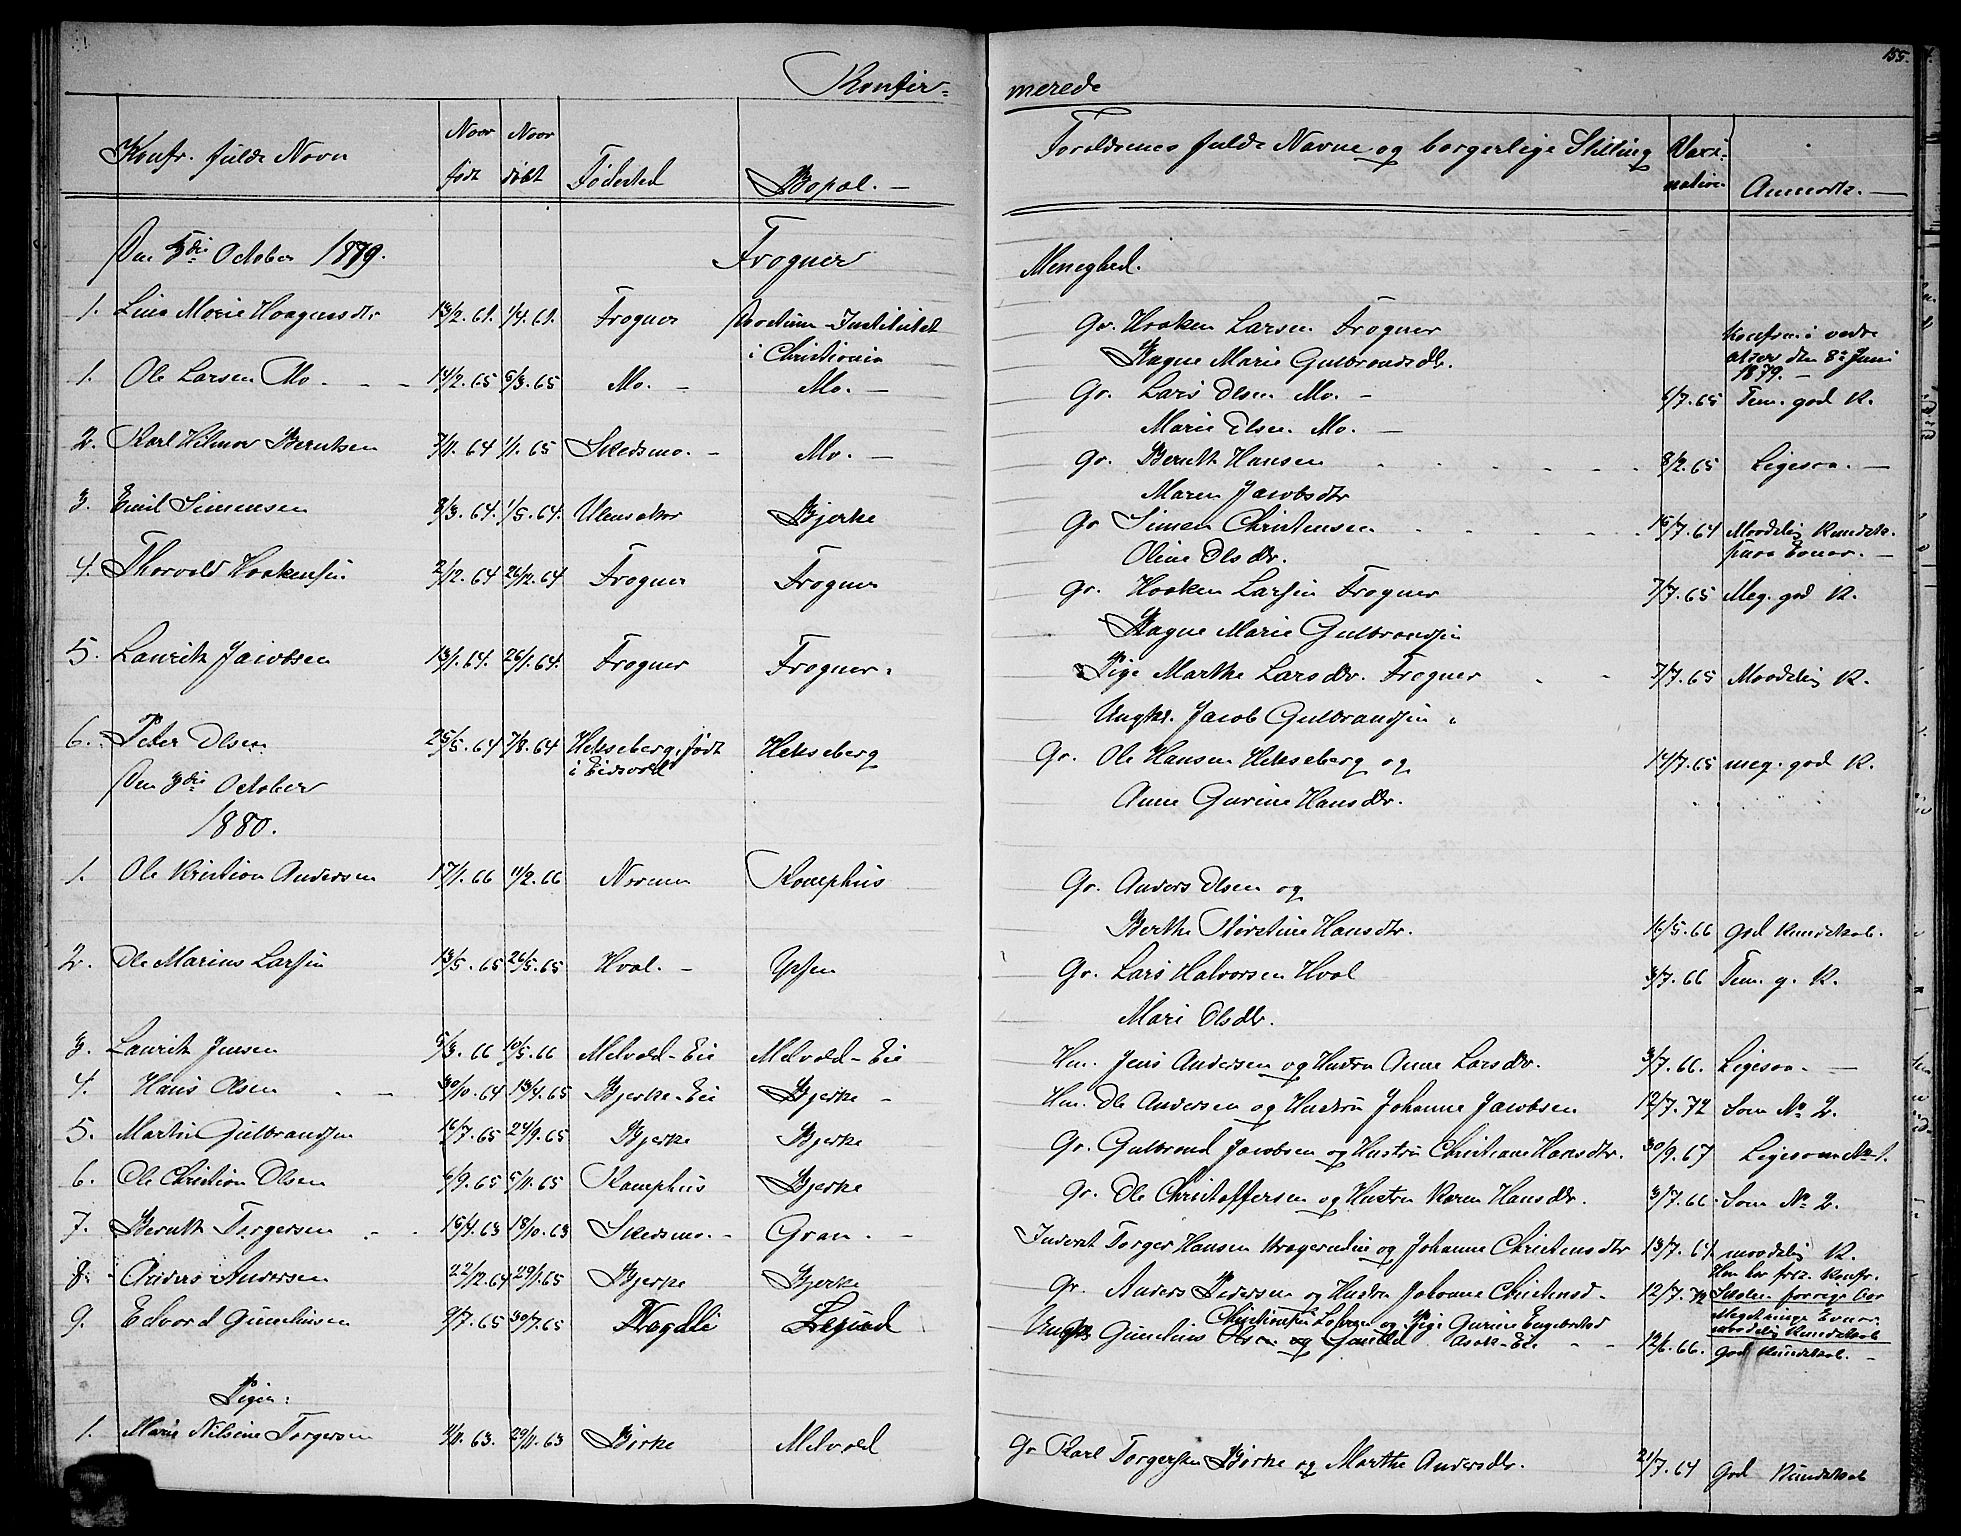 155.
Konfir-
merede
Konfr. fulde Navn
Naar født
Naar døbt
Fødested
Bopæl. -
Forældrenes fulde Navne og borgerlige Stilling
Vacc-
nation
Anmærk. -
Den 5te October 1879.
Frogner
Menighed.
1. Lina Marie Haagensdtr 13/2.61. 1/4.61. Frogner Institutet
i Christiania
Gr. Haaken Larsen Frogner
Ragne Marie Gulbrandsdtr.
Konfirm. i vedre
den 8de Juni
1879. -
1. Ole Larsen Mo. - - 14/2.65 5/3.65 Mo. - Mo. -
Gr. Lars Olsen Mo. - 6/7.65 Tem. god K.
Marie Olsen Mo. -
2. Karl Hilmar Berntsen 7/11.64 1/1.65 Skedsmo. - Mo. -
Gr. Berntk Hansen 8/2.65 Ligesaa. -
Maren Jacobsdtr
3. Emil Simensen 8/3.64. 1/5.64. Ullensaker Bjerke
Gr Simen Christensen 15/7.64 Maadelig Kundsk.
Oline Olsdtr. Evner. -
4. Thorvald Haakensen 2/2.64 26/2.64 Frogner Frogner
Gr. Haaken Larsen Frogner 7/7.65 Meg. god K.
Ragne Marie Gulbrandsen
5. Lauritz Jacobsen 13/1.64. 26/1.64. Frogner Frogner.
Pige Marthe Larsdtr. Frogner 7/7.65 Maadelig K.
Ungkl. Jacob Gulbrandsen
6. Peter Olsen 25/5.64 7/8.64 Hekseberg, født
i Eidsvold Hekseberg
Gr. Ole Hansen Hekseberg og 14/7.65 meg. god K.
Anne Gurine Hansdtr.
Den 3die October
1880.
1. Ole Kristian Andersen 17/1.66 11/2.66 Kamphus
Gr. Anders Olsen og
Berthe Hansdtr. 16/5.66 god Kundskab.
2. Ole Marius Larsen 13/5.65 26/5.65 Hval. -
Gr. Lars Halvorsen Hval 3/7.66 Tem. g. K.
Mari Olsdtr.
3. Lauritz Jensen 5/3.66 10/5.66 Melvold-Eie Melvold-Eie
Hm. Jens Andersen og Hustru Anne Larsdtr. 3/7.66. Ligesaa. -
4. Hans Olsen 30/10.64 13/4.65 Bjerke-Eie Bjerke -
Hm. Ole Andersen og Hustru Johanne Jacobsen 12/7.72 Som No 2.
5. Martin Gulbrandsen 16/7.65 24/9.65 Bjerke Bjerke
Gr. Gulbrand Jacobsen og Hustru Christiane Hansdtr. 30/9.67 Ligesom No 1.
6. Ole Christian Olsen 6/9.65 5/11.65 Kamphus Bjerke
Gr. Ole Christoffersen og Hustru Karen Hansdtr. 3/7.66. Som No 2.
7. Berntk Torgersen 15/4.63 18/10.63 Skedsmo. - Gran. -
Inderst Torger Hansen og Johanne Christensdtr 13/7.64 maadelig K.
8. Anders Andersen 22/12.64 29/1.65 Bjerke Bjerke
Gr. Anders Pedersen og Hustru Johanne Christensd - 12/7.72
Han har Konfr.
Skolen forrige Aar
Meget ringe Evner
maadelig Kundskab
9. Edvard Gunelius en 9/7.65 30/7.65 Nagdli
Ungkl. Gunelius Olsen og Gunild
og Pige Gurine Engebretsd
Asak-Eie 12/6.66. god Kundskab. -
Piger:
1. Marie Nilsine Torgersen 4/11.63. 29/11.63 Børke Melvold
Gr Karl Torgersen Børke og Marthe Andersdtr. 21/7.64 God Kundskab